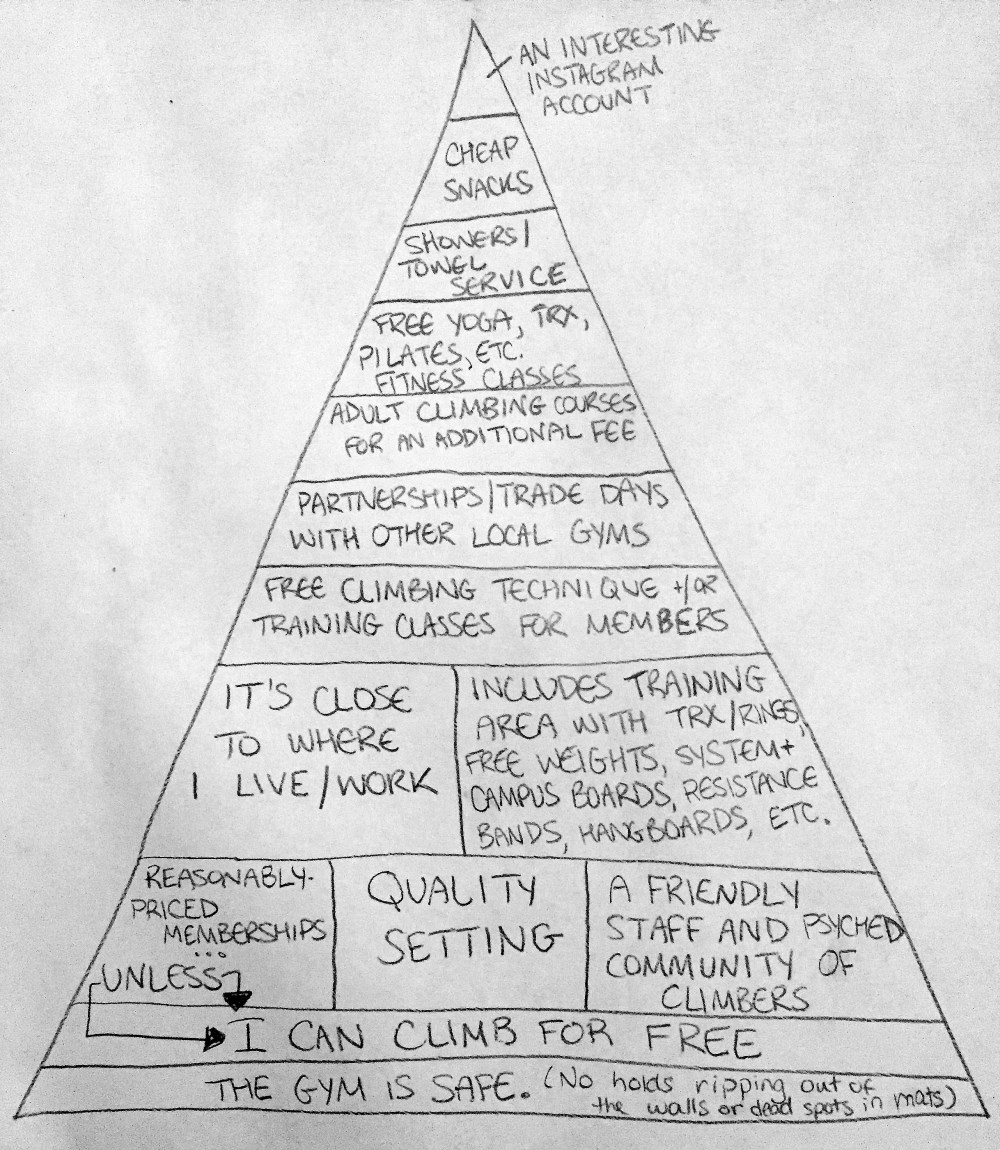 AN INTERESTING
INSTAGRAM
ACCOUNT
CHEAP
SNACKS
SHOWERS/
TOWEL
SERVICE
FREE YOGA, TRX,
PILATES, ETC.
FITNESS CLASSES
ADULT CLIMBING COURSES
FOR AN ADDITIONAL FEE
PARTNERSHIPS/TRADE DAYS
WITH OTHER LOCAL GYMS
FREE CLIMBING TECHNIQUE +/OR
TRAINING CLASSES FOR MEMBERS
IT'S CLOSE
TO WHERE
I LIVE/WORK
INCLUDES TRAINING
AREA WITH TRX/RINGS,
FREE WEIGHTS, SYSTEM+
CAMPUS BOARDS, RESISTANCE
BANDS, HANGBOARDS, ETC.
REASONABLY-
PRICED
MEMBERSHIPS
...
UNLESS
QUALITY
SETTING
A FRIENDLY
STAFF AND PSYCHED
COMMUNITY OF
CLIMBERS
I CAN CLIMB FOR FREE
THE GYM IS SAFE. (No holds ripping out of
the walls or dead spots in mats)